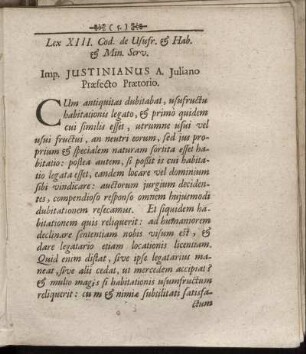 ( 5. )
Lex XIII. Cod. de Usufr. & Hab.
& Min. Serv.
Imp. JUSTINIANUS A. Juliano
Præfecto Prætorio.
CUm antiquitas dubitabat, usufructu
habitationis legato, & primo quidem
cui similis esset, utrumne usui vel
usui fructui, an neutri eorum, sed jus pro-
prium & specialem naturam sortita esset ha-
bitatio: postea autem, si possit is cui habita-
tio legata esset, eandem locare vel dominium
sibi vindicare: auctorum jurgium deciden-
tes, compendioso responso omnem hujusmodi
dubitationem resecamus. Et siquidem ha-
bitationem quis reliquerit: ad humaniorem
declinare sententiam nobis visum est, &
dare legatario etiam locationis licentiam.
Quid enim distat, sive ipse legatarius ma-
neat, sive alii cedat, ut mercedem accipiat?
& multo magis si habitationis usumfructum
reliquerit: cum & nimiæ subtilitati satisfa-
ctum